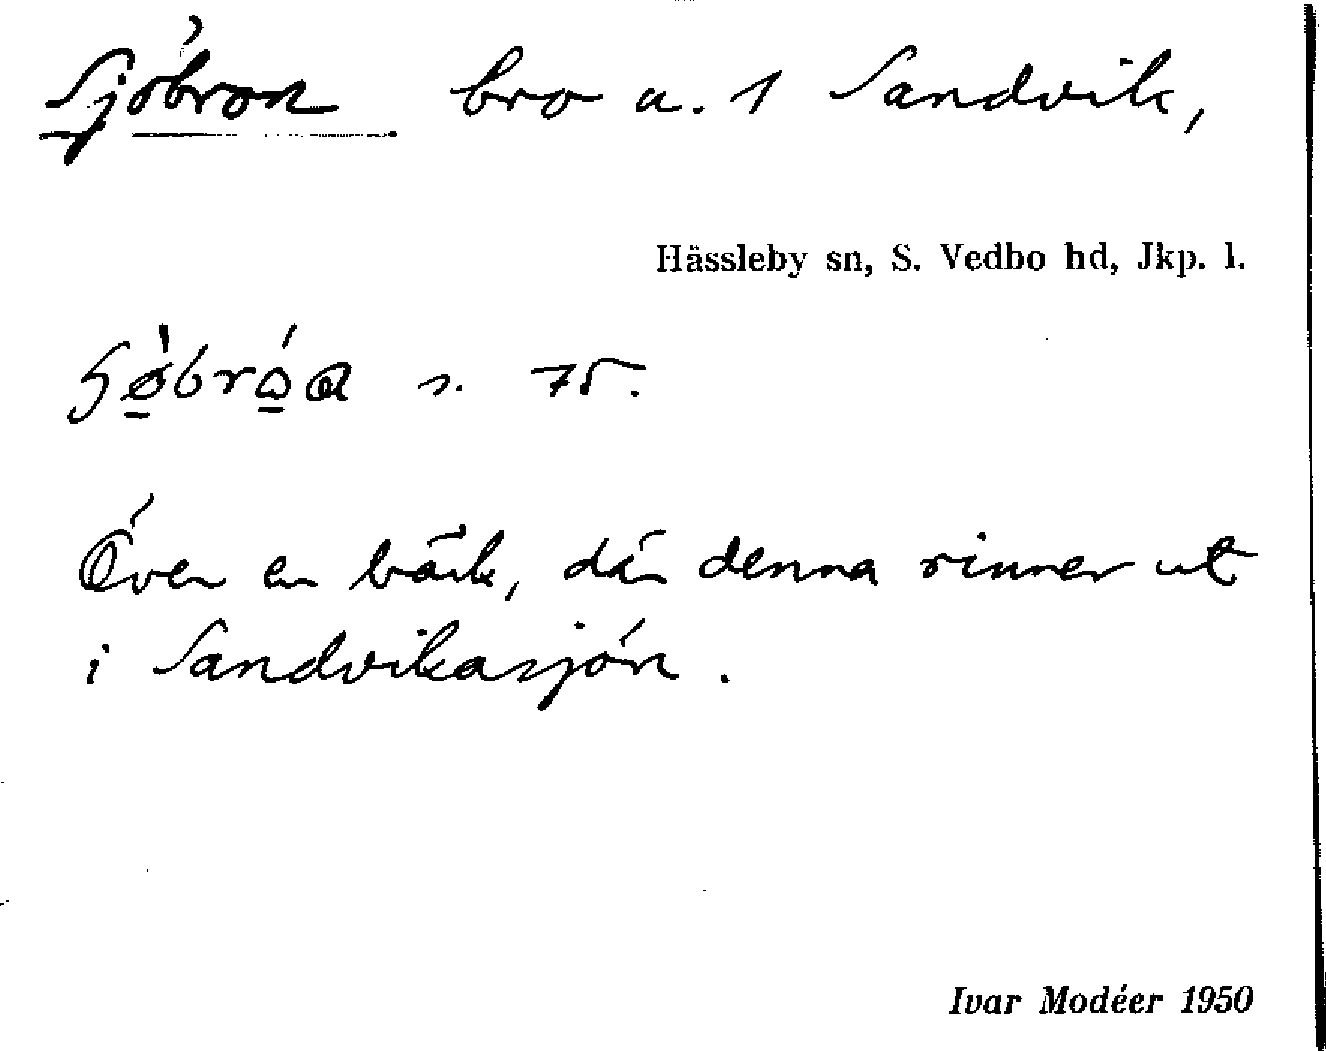 Sjöbron bro u. 1 Sandvik,
Hässleby sn, S. Vedbo hd, Jkp. l.
s. 75.
Över en bäck, där denna rinner ut
i Sandvikasjön.
Ivar Modéer 1950